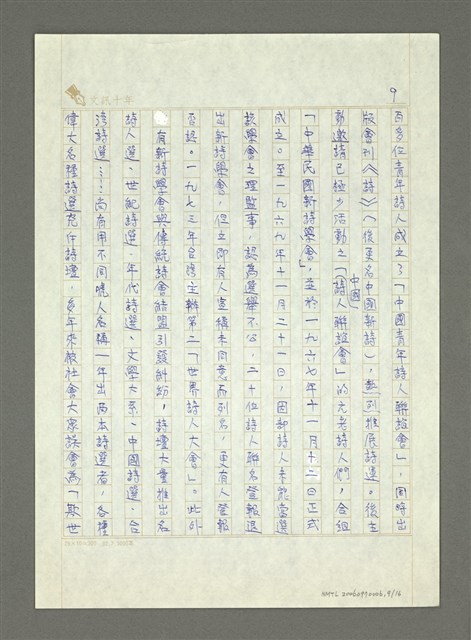 9
文訊
百多位青年詩人成立了「中國青年詩人聯誼會」,同時出
版會刊《詩》(後更名中國新詩),熱烈推展詩運。後主
動邀請已極少活動之「中國詩人聯誼會」的元老詩人們,合組
「中華民國新詩學會」,並於一九六七年十一月十二日正式
成立。至一九六九年十一月二十一日,因部詩人未能當選
該學會之理監事,認為選舉不公,二十位詩人聯名登報退
出新詩學會,但立即有人宣稱未同意而列名,更有人登報
否認。一九七三年台灣主辦第二「世界詩人大會」。此外
有新詩學會與傳統詩會結盟引發糾紛,詩壇大量推出名
詩人選、世紀詩選、年代詩選、文學大系、中國詩選、台
灣詩選……尚有用不同唬人名稱一年出兩本詩選者,各種
偉大名種詩選充斥詩壇,多年來被社會大眾誤會為「欺世
NMTL20060970006,9/16